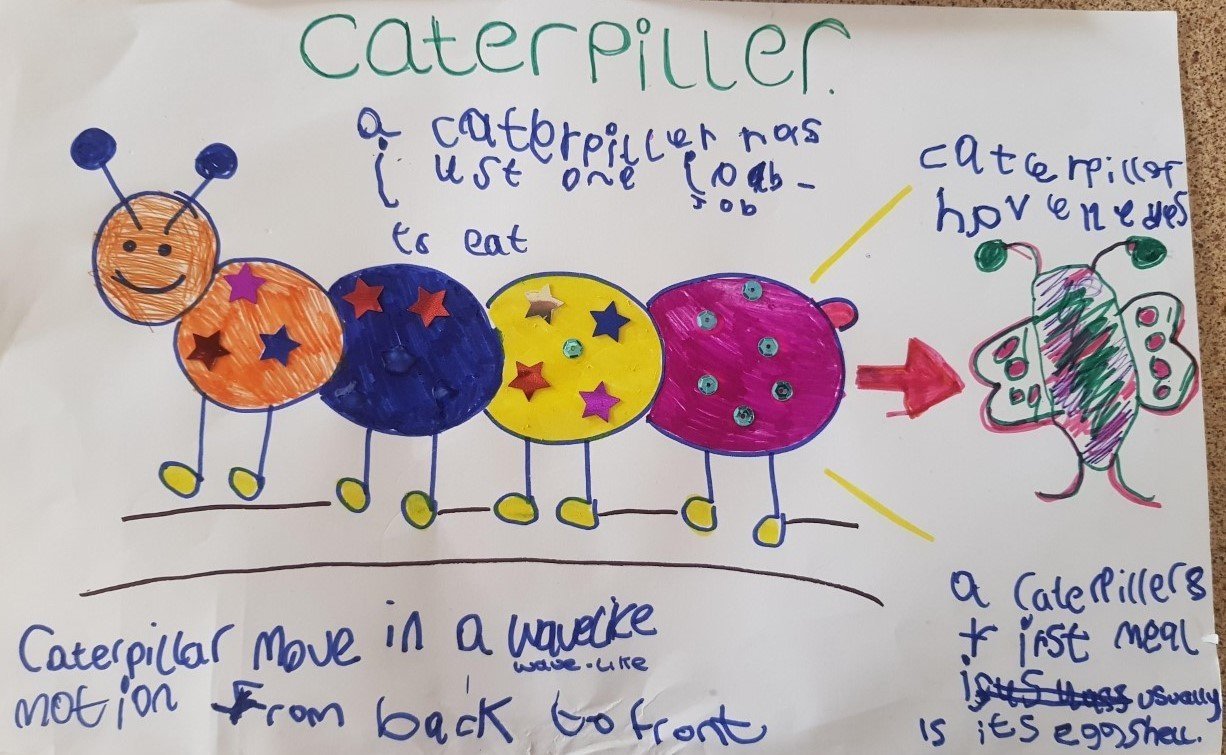 Caterpiller.
a caterpiller has
just one joab-
Job
to eat
caterpillar
hav eneyes
Caterpillar Move in a wavelike
wave-like
motion From back to front
a Caterpillers
first meal
usually
is its eggshell.